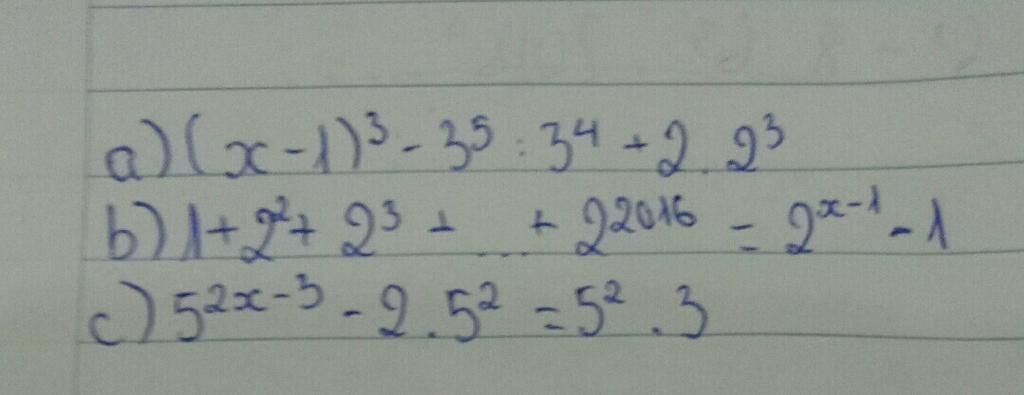 a) (x-1)³ - 3⁵ : 3⁴ + 2 . 2³
b) 1 + 2² + 2³ + ... + 2²⁰¹⁶ = 2ˣ⁻¹ - 1
c) 5²ˣ⁻³ - 2 . 5² = 5² . 3